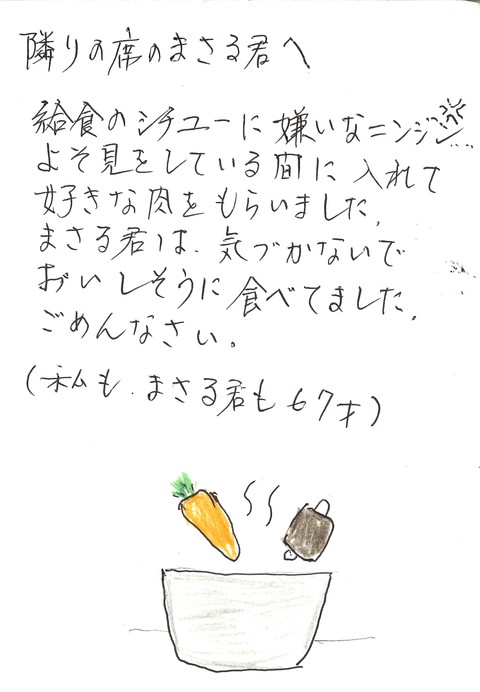 隣りの席のまさる君へ
給食のシチューに嫌いなニンジン
よそ見をしている間に入れて
好きな肉をもらいました。
まさる君は、気づかないで
おいしそうに食べてました。
ごめんなさい。
(私も、まさる君も67才)